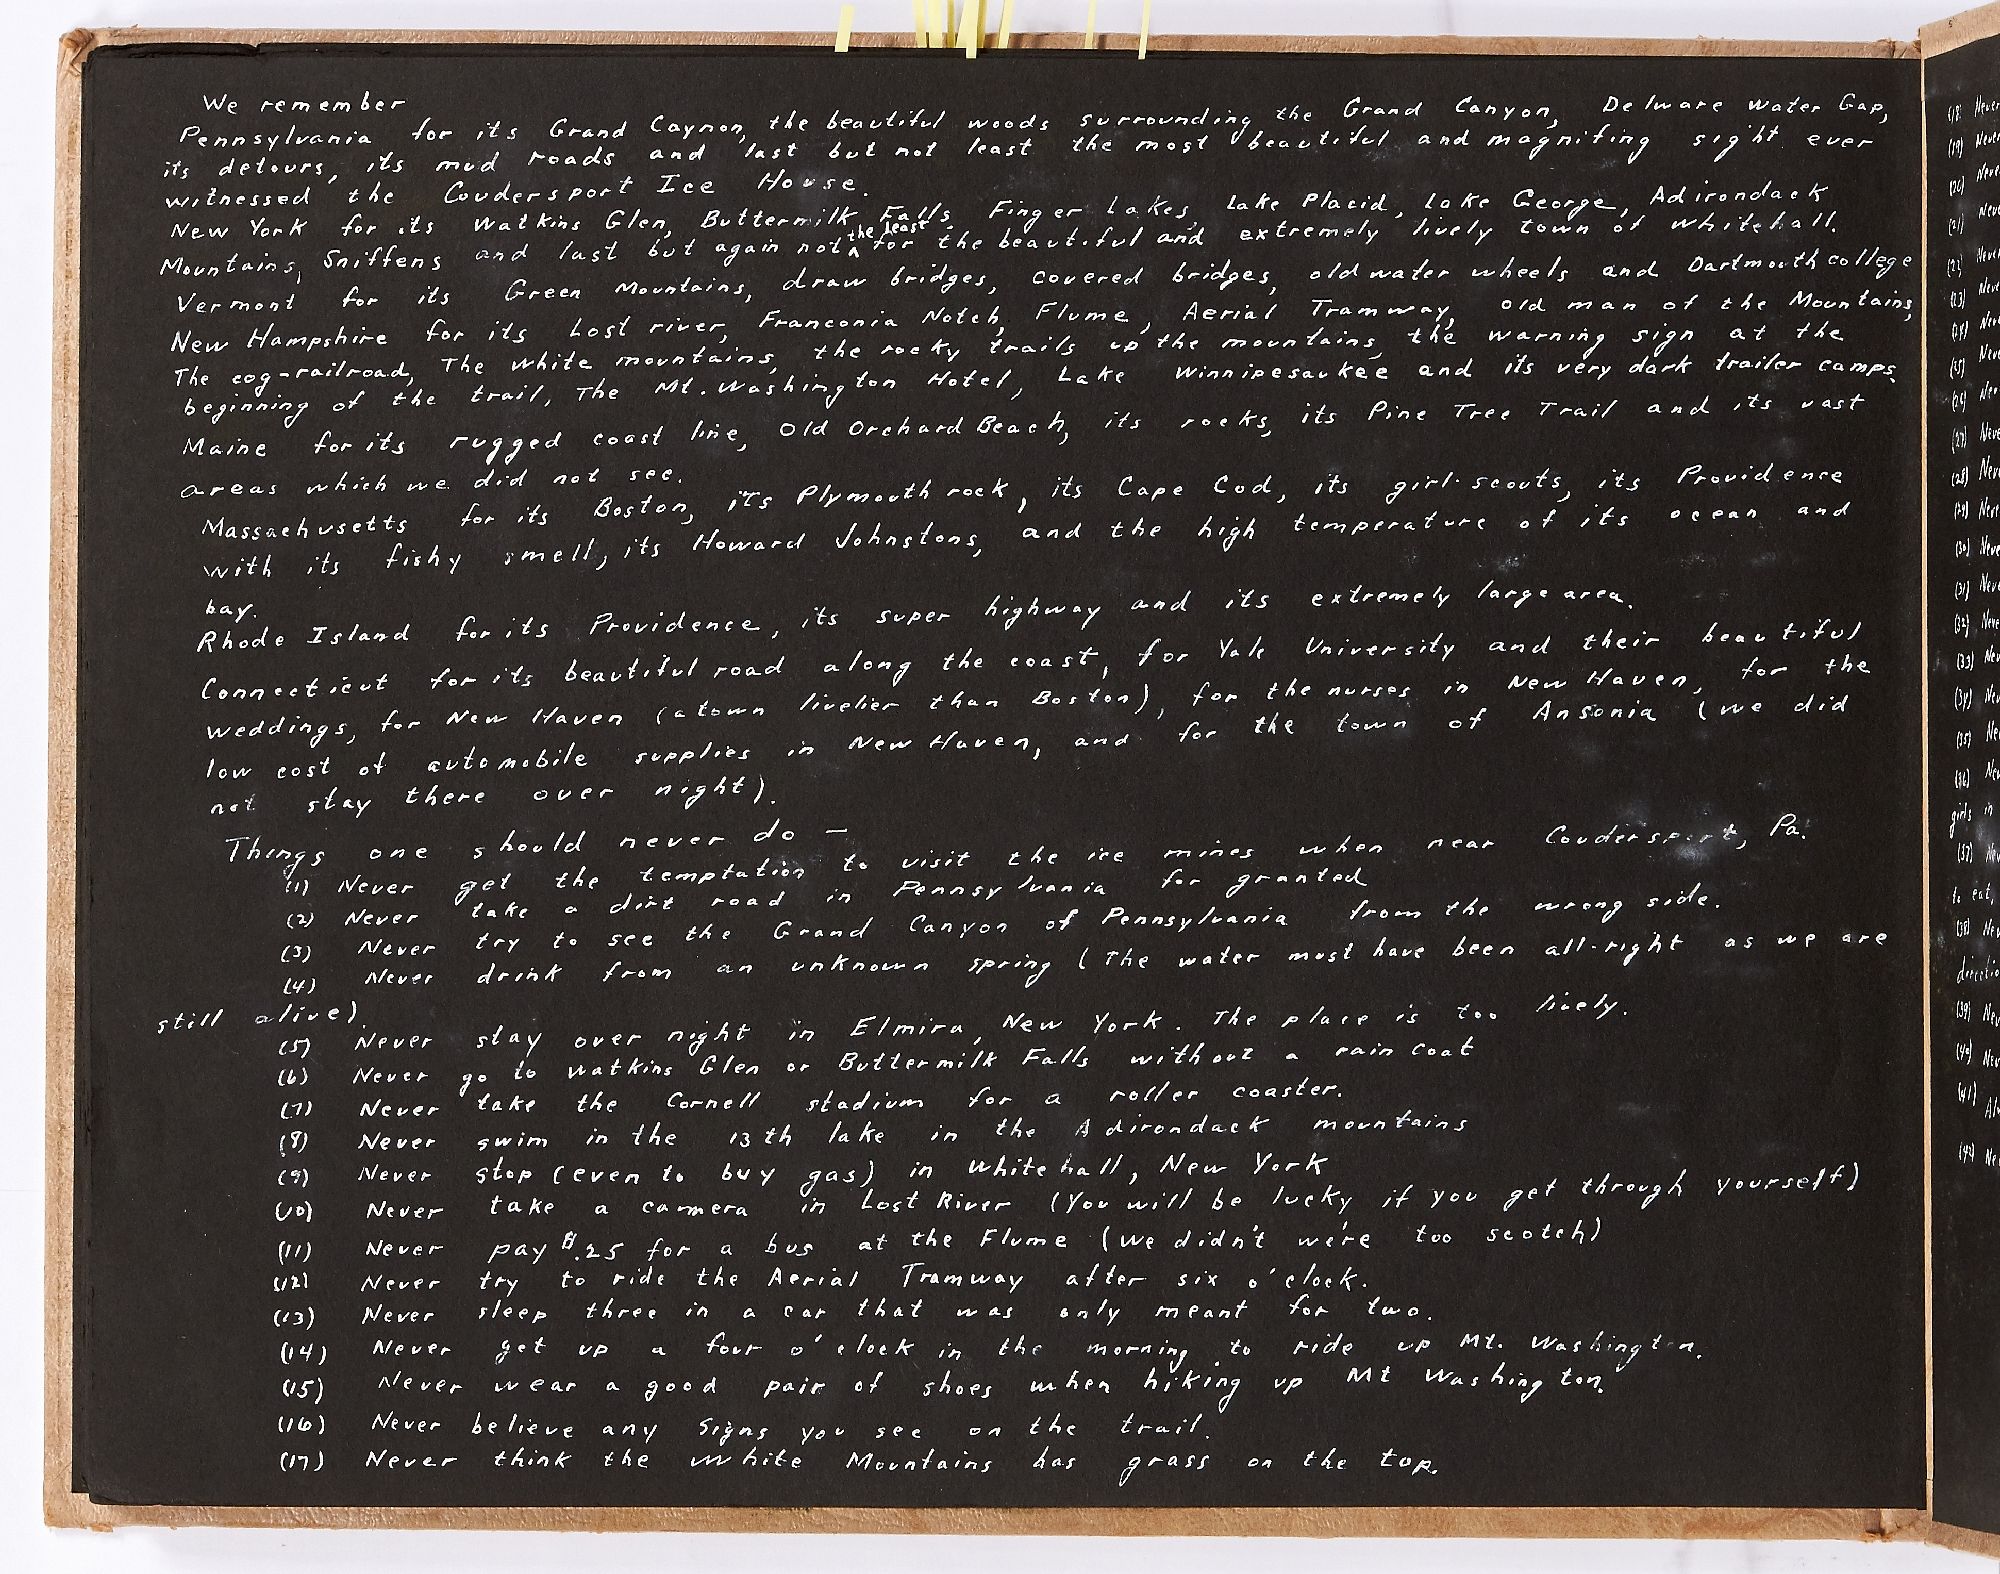 We remember
Pennsylvania for its Grand Caynon, the beautiful woods surrounding the Grand Canyon, Delware Water Gap,
its detours, its mud roads and last but not least the most beautiful and magnifing sight ever
witnessed the Coudersport Ice House.
New York for its Watkins Glen, Buttermilk Falls, Finger Lakes, Lake Placid, Lake George, Adirondack
Mountains, Sniffens and last but again not the least for the beautiful and extremely lively town of Whitehall.
Vermont for its Green Mountains, draw bridges, covered bridges, old water wheels and Dartmouth college
New Hampshire for its Lost river, Franconia Notch, Flume, Aerial Tramway, old man of the Mountains,
The cog-railroad, The white mountains, the rocky trails up the mountains, the warning sign at the
beginning of the trail, The Mt. Washington Hotel, Lake Winnipesaukee and its very dark trailer camps.
Maine for its rugged coast line, Old Orchard Beach, its rocks, its Pine Tree Trail and its vast
areas which we did not see.
Massachusetts for its Boston, its Plymouth rock, its Cape Cod, its girl-scouts, its Providence
with its fishy smell, its Howard Johnstons, and the high temperature of its ocean and
bay.
Rhode Island for its Providence, its super highway and its extremely large area.
Connecticut for its beautiful road along the coast, for Yale University and their beautiful
weddings, for New Haven (a town livelier than Boston), for the nurses in New Haven, for the
low cost of automobile supplies in New Haven, and for the town of Ansonia (we did
not stay there over night).
Things one should never do —
(1) Never get the temptation to visit the ice mines when near Coudersport, Pa.
(2) Never take a dirt road in Pennsylvania for granted
(3) Never try to see the Grand Canyon of Pennsylvania from the wrong side.
(4) Never drink from an unknown spring (The water must have been all-right as we are
still alive).
(5) Never stay over night in Elmira, New York. The place is too lively.
(6) Never go to Watkins Glen or Buttermilk Falls without a rain coat
(7) Never take the Cornell stadium for a roller coaster.
(8) Never swim in the 13th lake in the Adirondack mountains
(9) Never stop (even to buy gas) in Whitehall, New York
(10) Never take a camera in Lost River (You will be lucky if you get through yourself)
(11) Never pay $.25 for a bus at the Flume (we didn't we're too scotch)
(12) Never try to ride the Aerial Tramway after six o'clock.
(13) Never sleep three in a car that was only meant for two.
(14) Never get up a four o'clock in the morning to ride up Mt. Washington.
(15) Never wear a good pair of shoes when hiking up Mt Washington.
(16) Never believe any signs you see on the trail.
(17) Never think the White Mountains has grass on the top.
(18) Never
(19) Never
(20)
(21)
(22)
(23)
(24)
(25)
(26)
(27)
(28)
(29)
(30)
(31)
(32)
(33)
(34)
(35)
(36)
girls in
(37)
to eat,
(38)
(39)
(40)
(41)
(42)